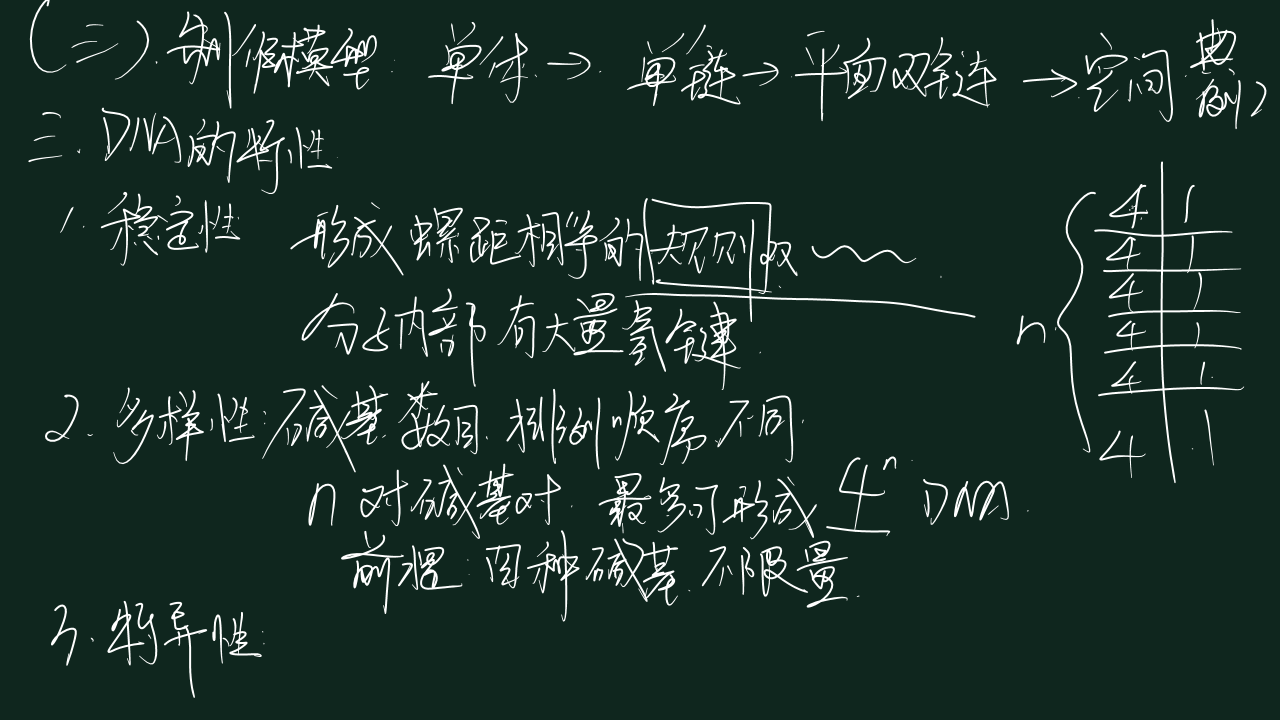 (二).制作模型: 单体 → 单链 → 平面双链 → 空间 典例2
三. DNA的特性
1. 稳定性 形成螺距相等的规则双
分子内部有大量氢键.
2. 多样性: 碱基数目.排列顺序不同.
n对碱基对. 最多可形成 4ⁿ DNA.
前提: 四种碱基.不限量.
3. 特异性:
n
4 1
4 1
4 1
4 1
4 1
4 1